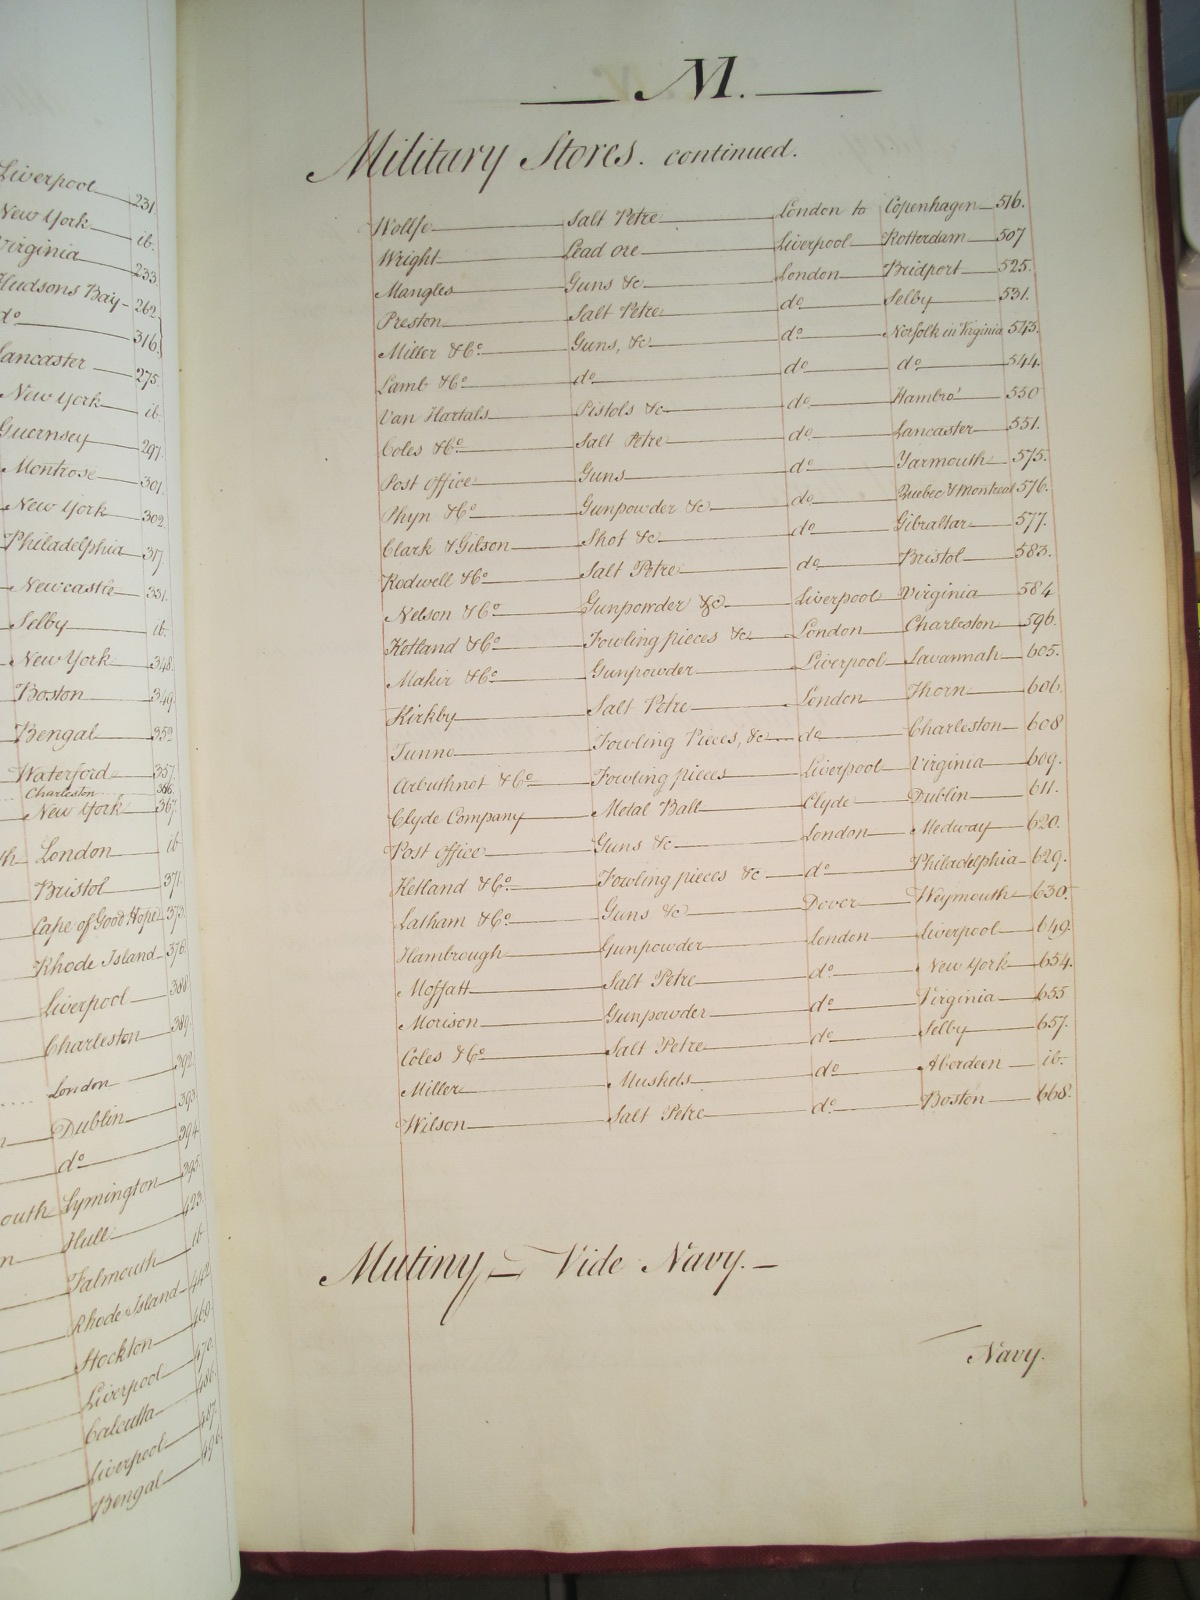 Liverpool 231
New York ib.
Virginia 233
Hudsons Bay 262
do 316
Lancaster 275
New York ib.
Guernsey 297
Montrose 301
New York 302
Philadelphia 317
Newcastle 331
Selby ib.
New York 348
Boston 349
Bengal 352
Waterford 357
Charleston 366
New York 367
London ib
Bristol 371
Cape of Good Hope 373
Rhode Island 376
Liverpool 388
Charleston 389
London 392
Dublin 393
do 394
outh Lymington 395
Hull 423
Falmouth ib
Rhode Island 442
Stockton 469
Liverpool 470
Calcutta 486
Liverpool 487
Bengal 496
M.
Military Stores. continued.
Wollfe Salt Petre London to Copenhagen 516.
Wright Lead ore Liverpool Rotterdam 507
Mangles Guns &c London Bridport 525.
Preston Salt Petre do Selby 531.
Miller & Co. Guns, &c do Norfolk in Virginia 543.
Lamb & Co. do do do 544.
Van Hartals Pistols &c do Hambro' 550
Coles & Co. Salt Petre do Lancaster 551.
Post Office Guns do Yarmouth 575.
Phyn & Co. Gunpowder &c do Quebec & Montreal 576.
Clark & Gilson Shot &c do Gibraltar 577.
Rodwell & Co. Salt Petre do Bristol 583.
Nelson & Co. Gunpowder &c Liverpool Virginia 584
Ketland & Co. Fowling pieces &c London Charleston 596.
Makir & Co. Gunpowder Liverpool Savannah 605.
Kirkby Salt Petre London Thorn 606.
Tunno Fowling Pieces, &c do Charleston 608
Arbuthnot & Co. Fowling pieces Liverpool Virginia 609.
Clyde Company Metal Ball Clyde Dublin 611.
Post Office Guns &c London Medway 620.
Ketland & Co. Fowling pieces &c do Philadelphia 629.
Latham & Co. Guns &c Dover Weymouth 630.
Hambrough Gunpowder London Liverpool 649.
Moffatt Salt Petre do New York 654.
Morison Gunpowder do Virginia 655
Coles & Co. Salt Petre do Selby 657.
Miller Muskets do Aberdeen ib.
Wilson Salt Petre do Boston 668.
Mutiny – Vide Navy. –
Navy.